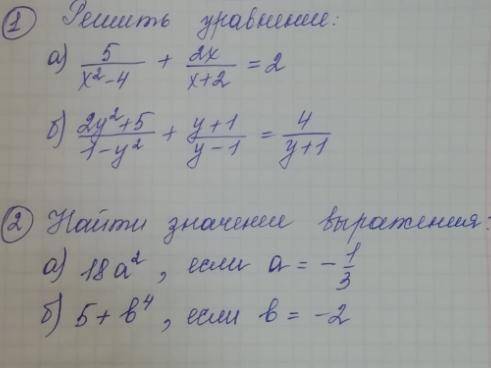 ① Решить уравнение:
а) 5/(x²-4) + 2x/(x+2) = 2
б) (2y²+5)/(1-y²) + (y+1)/(y-1) = 4/(y+1)
② Найти значение выражения:
а) 18a², если a = -1/3
б) 5 + b⁴, если b = -2